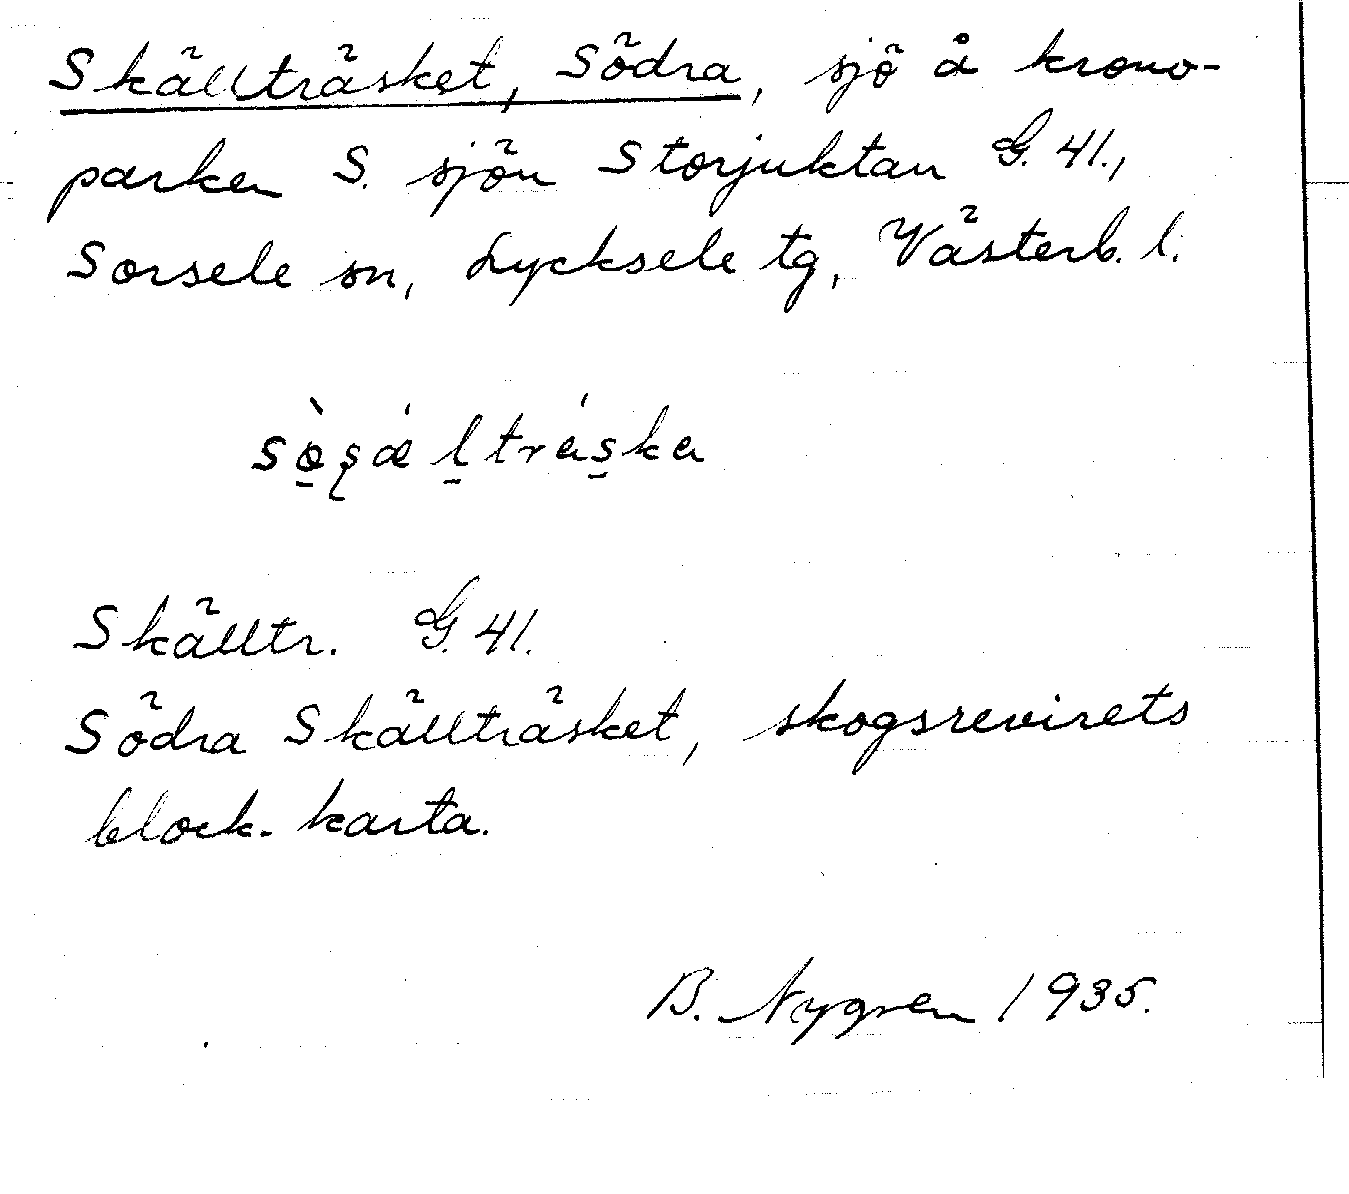 Skällträsket, Södra, sjö å krono-
parken S. sjön Storjuktan G. 41.,
Sorsele sn, Lycksele tg, Västerb. l.
Skälltr. G. 41.
Södra Skällträsket, skogsrevirets
block-karta.
B. Nygren 1935.